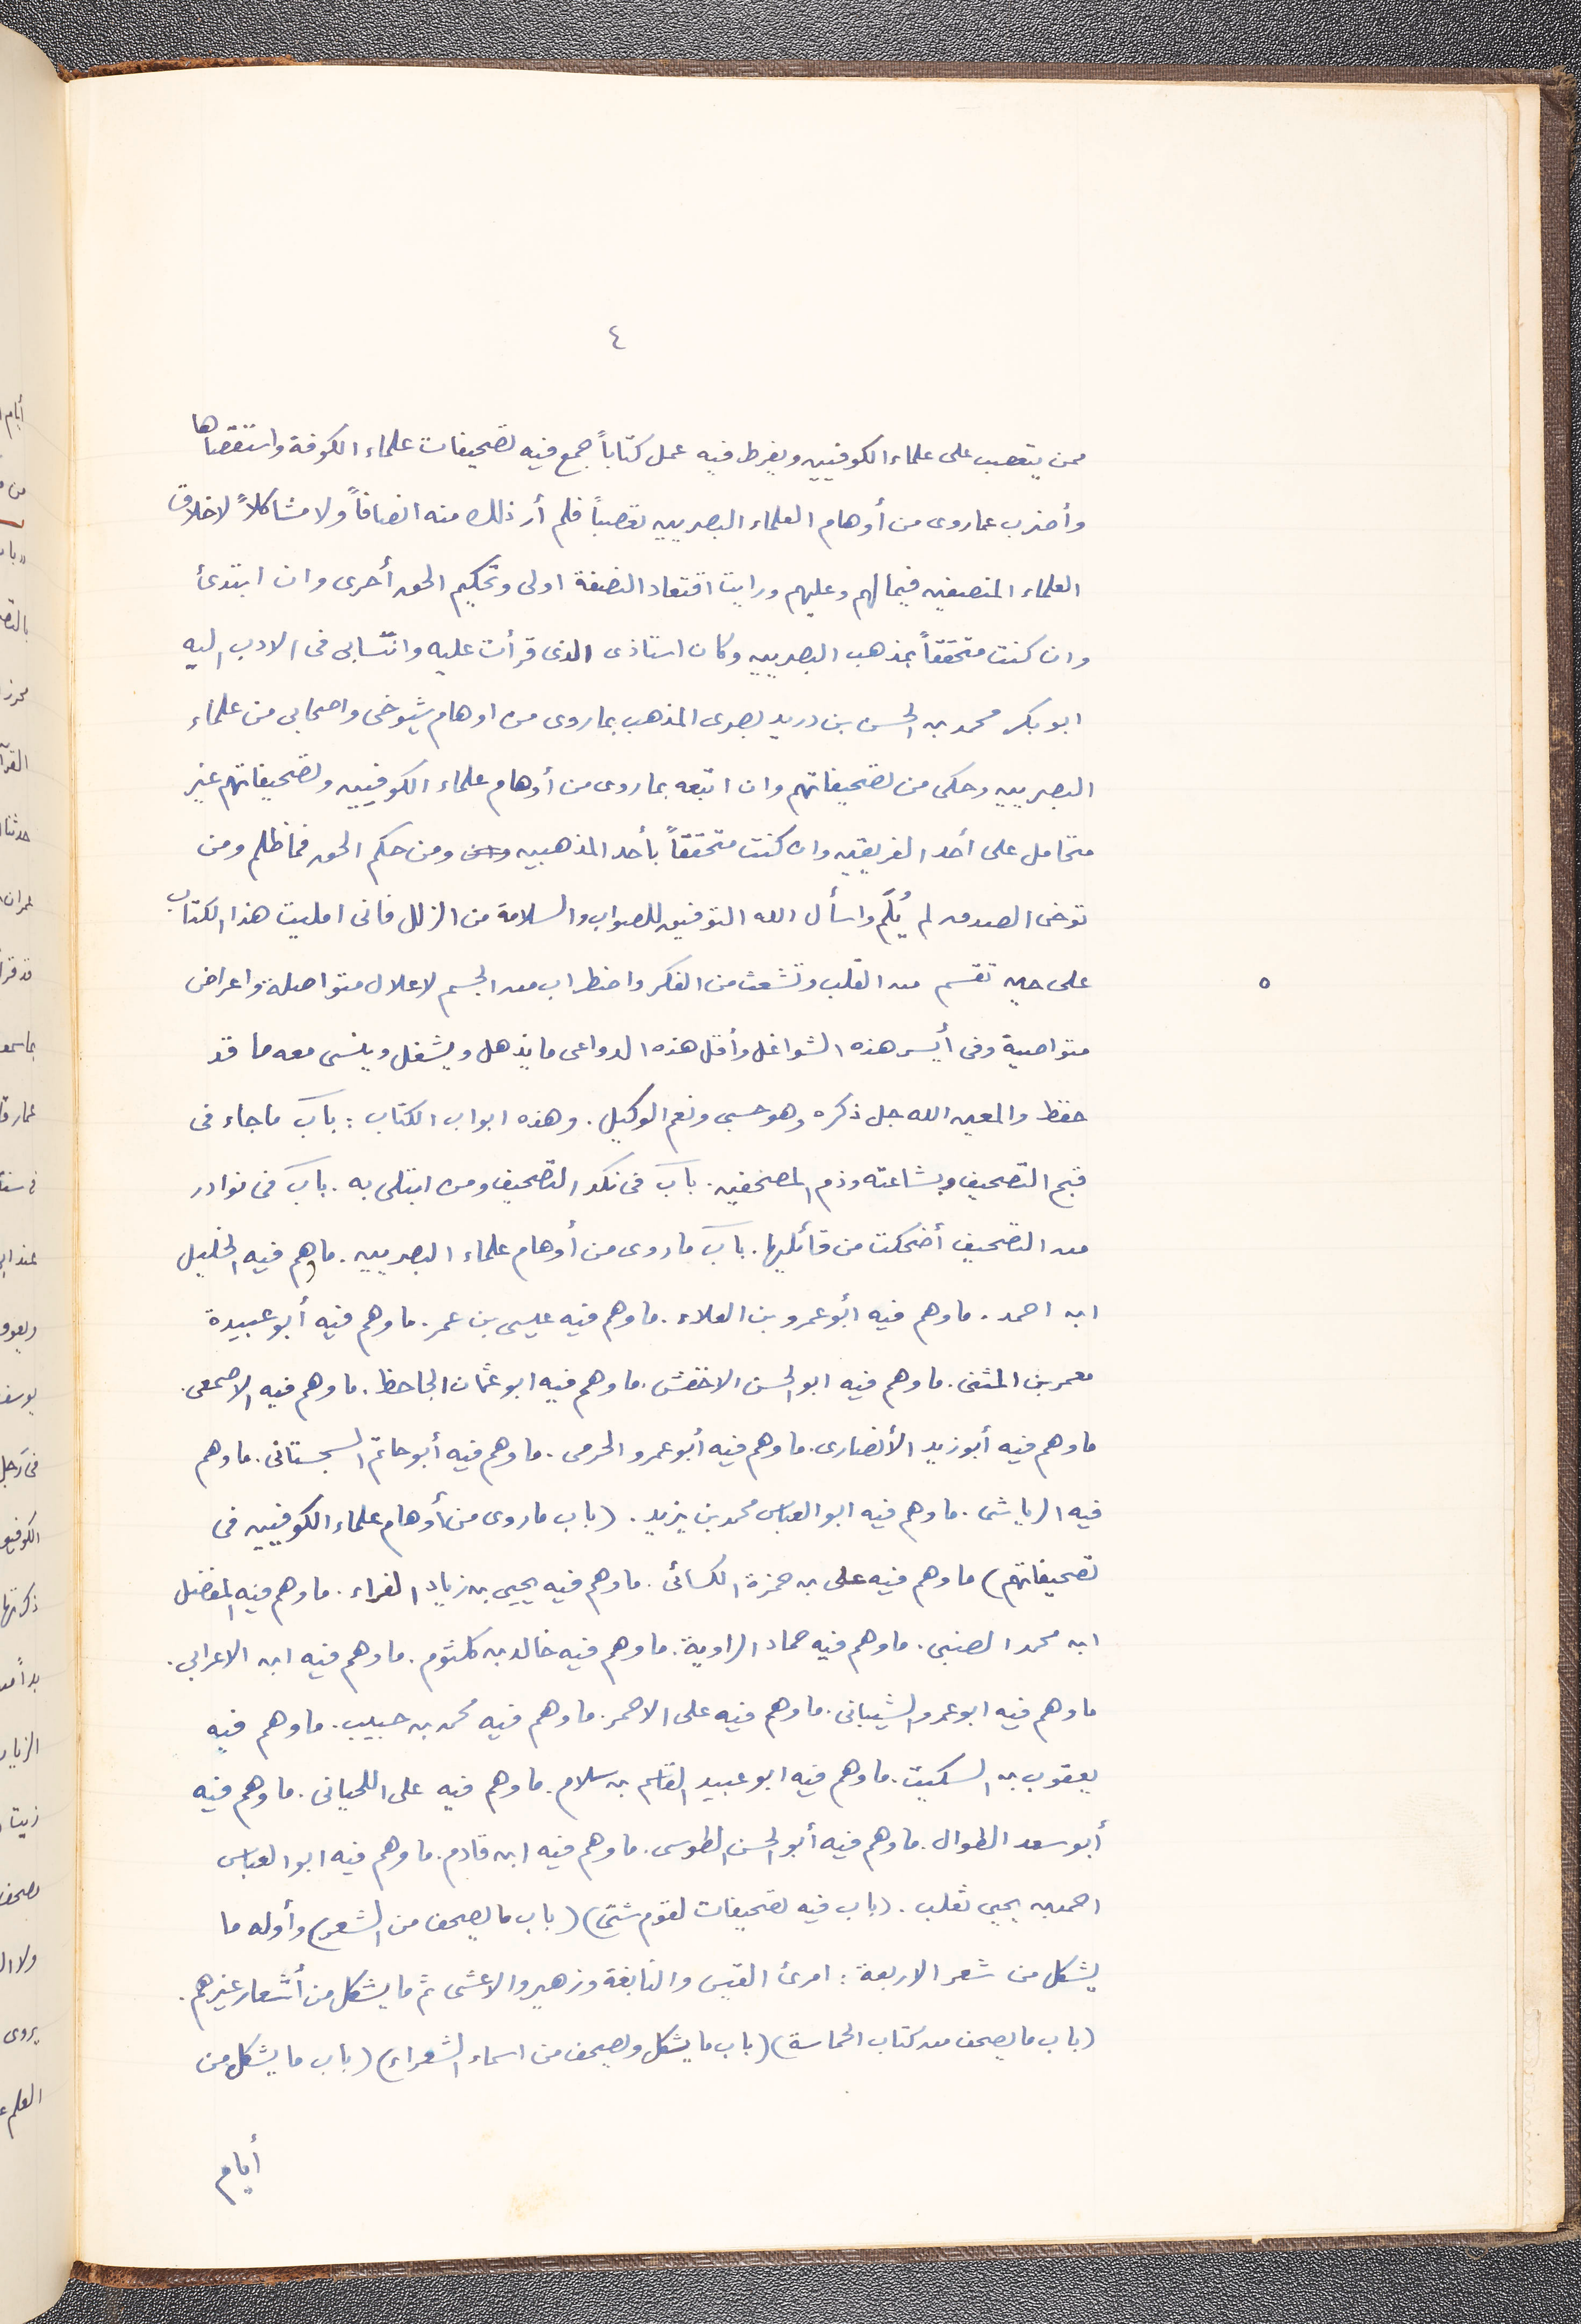 ٤
ممن يتعصب على علماء الكوفيين ويفرط فيه عمل كتاباً جمع فيه تصحيفات علماء الكوفة واستقصاها
وأضرب عما روى من أوهام العلماء البصريين تعصباً فلم أر ذلك منه انصافاً ولا مشاكلاً لاخلاق
العلماء المنصفين فيما لهم وعليهم ورايت اقتعاد النصفة اولى وتحكيم الحق أحرى وان ابتدئ
وان كنت متحققاً بمذهب البصريين وكان استاذى الذى قرأت عليه وانتسابى فى الادب اليه
ابو بكر محمد بن الحسن بن دريد بصرى المذهب بما روى من اوهام شيوخى واصحابى من علماء
البصريين وحكى من تصحيفاتهم وان اتبعه بما روى من أوهام علماء الكوفيين وتصحيفاتهم غير
متحامل على أحد الفريقين وان كنت متحققاً بأحد المذهبين ومن حكم الحق فما ظلم ومن
توخى الصدق لم يُلَم واسأل الله التوفيق للصواب والسلامة من الزلل فانى امليت هذا الكتاب
على حين تقسم من القلب وتشعث من الفكر واضطراب من الجسم لاعلال متواصلة واعراض
٥
متواصية وفى أيسر هذه الشواغل وأقل هذه الدواعى ما يذهل ويشغل وينسى معه ما قد
حفظ والمعين الله جل ذكره وهو حسبى ونعم الوكيل. وهذه ابواب الكتاب : باب ما جاء فى
قبح التصحيف وبشاعته وذم المصحفين. باب فى نكد التصحيف ومن ابتلى به. باب فى نوادر
من التصحيف أضحكت من قائليها. باب ما روى من أوهام علماء البصريين. ما وهم فيه الخليل
ابن احمد. ما وهم فيه أبو عمرو بن العلاء. ما وهم فيه عيسى بن عمر. ما وهم فيه أبو عبيدة
معمر بن المثنى. ما وهم فيه ابو الحسن الاخفش. ما وهم فيه ابو عثمان الجاحظ. ما وهم فيه الاصمعى.
ما وهم فيه أبو زيد الأنصارى. ما وهم فيه أبو عمرو الجرمى. ما وهم فيه أبو حاتم السجستانى. ما وهم
فيه الرياشى. ما وهم فيه ابو العباس محمد بن يزيد. (باب ما روى من أوهام علماء الكوفيين فى
تصحيفاتهم) ما وهم فيه على بن حمزة الكسائى. ما وهم فيه يحيى بن زياد الفراء. ما وهم فيه المفضل
ابن محمد الضبى. ما وهم فيه حماد الراوية. ما وهم فيه خالد بن كلثوم. ما وهم فيه ابن الاعرابى.
ما وهم فيه ابو عمرو الشيبانى. ما وهم فيه على الاحمر. ما وهم فيه محمد بن حبيب. ما وهم فيه
يعقوب بن السكيت. ما وهم فيه ابو عبيد القاسم بن سلام. ما وهم فيه على اللحيانى. ما وهم فيه
أبو سعد الطوال. ما وهم فيه أبو الحسن الطوسى. ما وهم فيه ابن قادم. ما وهم فيه ابو العباس
احمد بن يحيى ثعلب. (باب فيه تصحيفات لقوم شتى) (باب ما يصحف من الشعر) وأوله ما
يشكل من شعر الاربعة : امرئ القيس والنابغة وزهير والاعشى ثم ما يشكل من أشعار غيرهم.
(باب ما يصحف من كتاب الحماسة) (باب ما يشكل ويصحف من اسماء الشعراء) (باب ما يشكل من
أيام